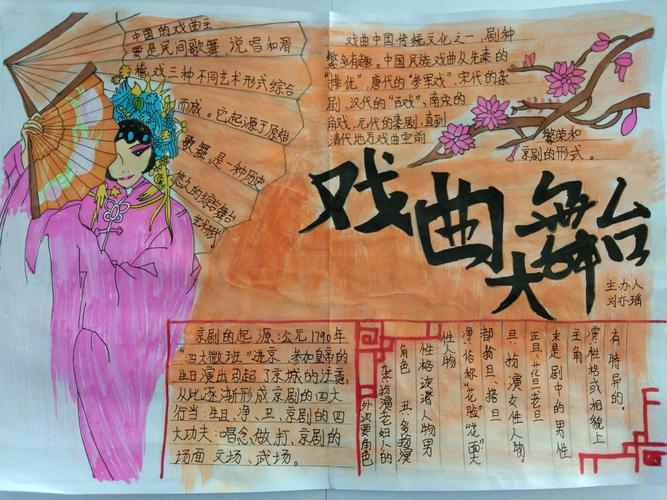 中国的戏曲主
要是民间歌舞、说唱和滑
稽戏三种不同艺术形式综合
而成。它起源于原始
歌舞,是一种历史
悠久的综合舞台
艺术样式
戏曲中国传统文化之一,剧种
繁多有趣。中国民族戏曲从先秦的
"俳优"、唐代的"参军戏"、宋代的杂
剧、汉代的"百戏"、南宋的
角戏、元代的杂剧,直到
清代地方戏曲空前
繁荣和
京剧的形式。
戏曲
大舞台
主办人
刘亦瑶
京剧的起源:公元1790年
"四大徽班"进京,参加皇帝的
生日演出引起了京城的注意,
从此逐渐形成京剧的四大
行当:生、旦、净、丑、京剧的四
大功夫:唱念、做、打、京剧的
场面文场、武场。
有特异的。
演性格或相貌上
主角
末是剧中的男性
正旦、花旦、老旦
旦、扮演女性人物。
都扮旦、搭旦
演,俗称"花脸""花面"大
性人物
性格泼诸人物男
角色 丑:多扮演
杂:扮演老妇人的
外次要角色